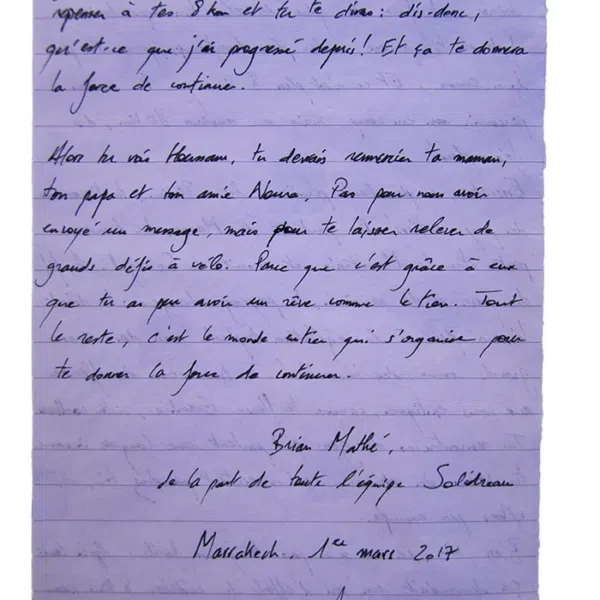 repenser à tes 8 km et tu te diras : dis-donc,
qu'est-ce que j'ai progressé depuis ! Et ça te donnera
la force de continuer.
Alors tu vois Houssam, tu devais remercier ta maman,
ton papa et ton amie Noura. Pas pour nous avoir
envoyé un message, mais pour te laisser relever de
grands défis à vélo. Parce que c'est grâce à eux
que tu as pu avoir un rêve comme le tien. Tout
le reste, c'est le monde entier qui s'organise pour
te donner la force de continuer.
Brian Mathé,
de la part de toute l'équipe Solidreau
Marrakech, 1er mars 2017